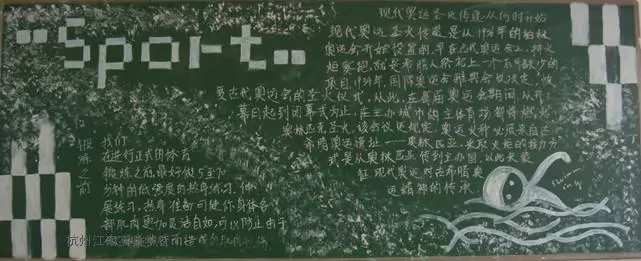 "Sport"
现代奥运圣火传递从何时开始
现代奥运圣火传递是从1936年的柏林
奥运会开始设置的,早在古代奥运会上,持火
炬赛跑就是希腊人祭祀上一个不可缺少的
项目,1934年,国际奥运会雅典会议决定,恢
复古代奥运会的圣火仪式,从此,在每届奥运会期间,从开
幕日起到闭幕式为止,在主办城市的主体育场都将燃起
奥林匹克圣火,该会议还规定,奥运火种必须来自
希腊奥运遗址——奥林匹亚,采取火炬的接力方
式是从奥林匹亚传到主办国,以此来象
征现代奥运对古希腊奥
运精神的传承
锻炼之前
我们
在进行正式的体育
锻炼之前最好做5至10
分钟的低强度的热身练习,伸
展练习,热身准备可使你身体各
部肌肉更加灵活自如,可以防止由于
而造成
Swimming